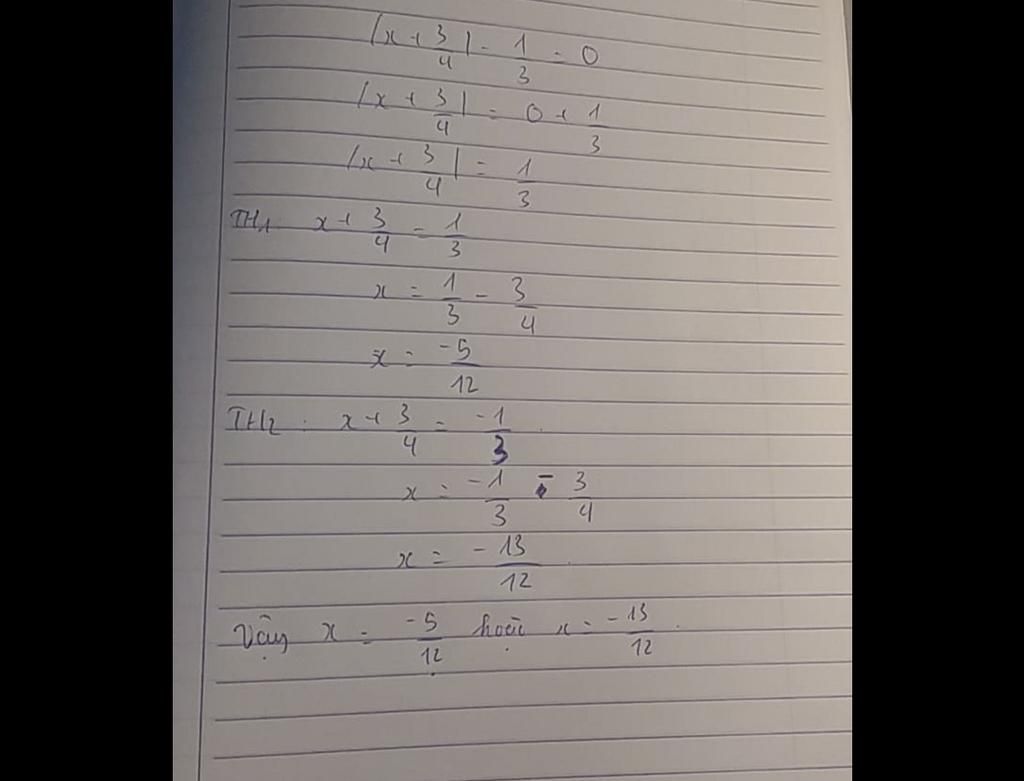 |x + 3/4| - 1/3 = 0
|x + 3/4| = 0 + 1/3
|x + 3/4| = 1/3
TH1: x + 3/4 = 1/3
x = 1/3 - 3/4
x = -5/12
TH2: x + 3/4 = -1/3
x = -1/3 - 3/4
x = -13/12
Vậy x = -5/12 hoặc x = -13/12.